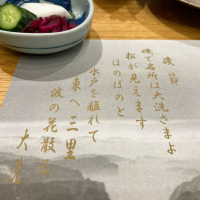 磯節
磯で名所は大洗さまよ
松が見えます
ほのぼのと
水戸を離れて
東へ三里
波の花散る
大